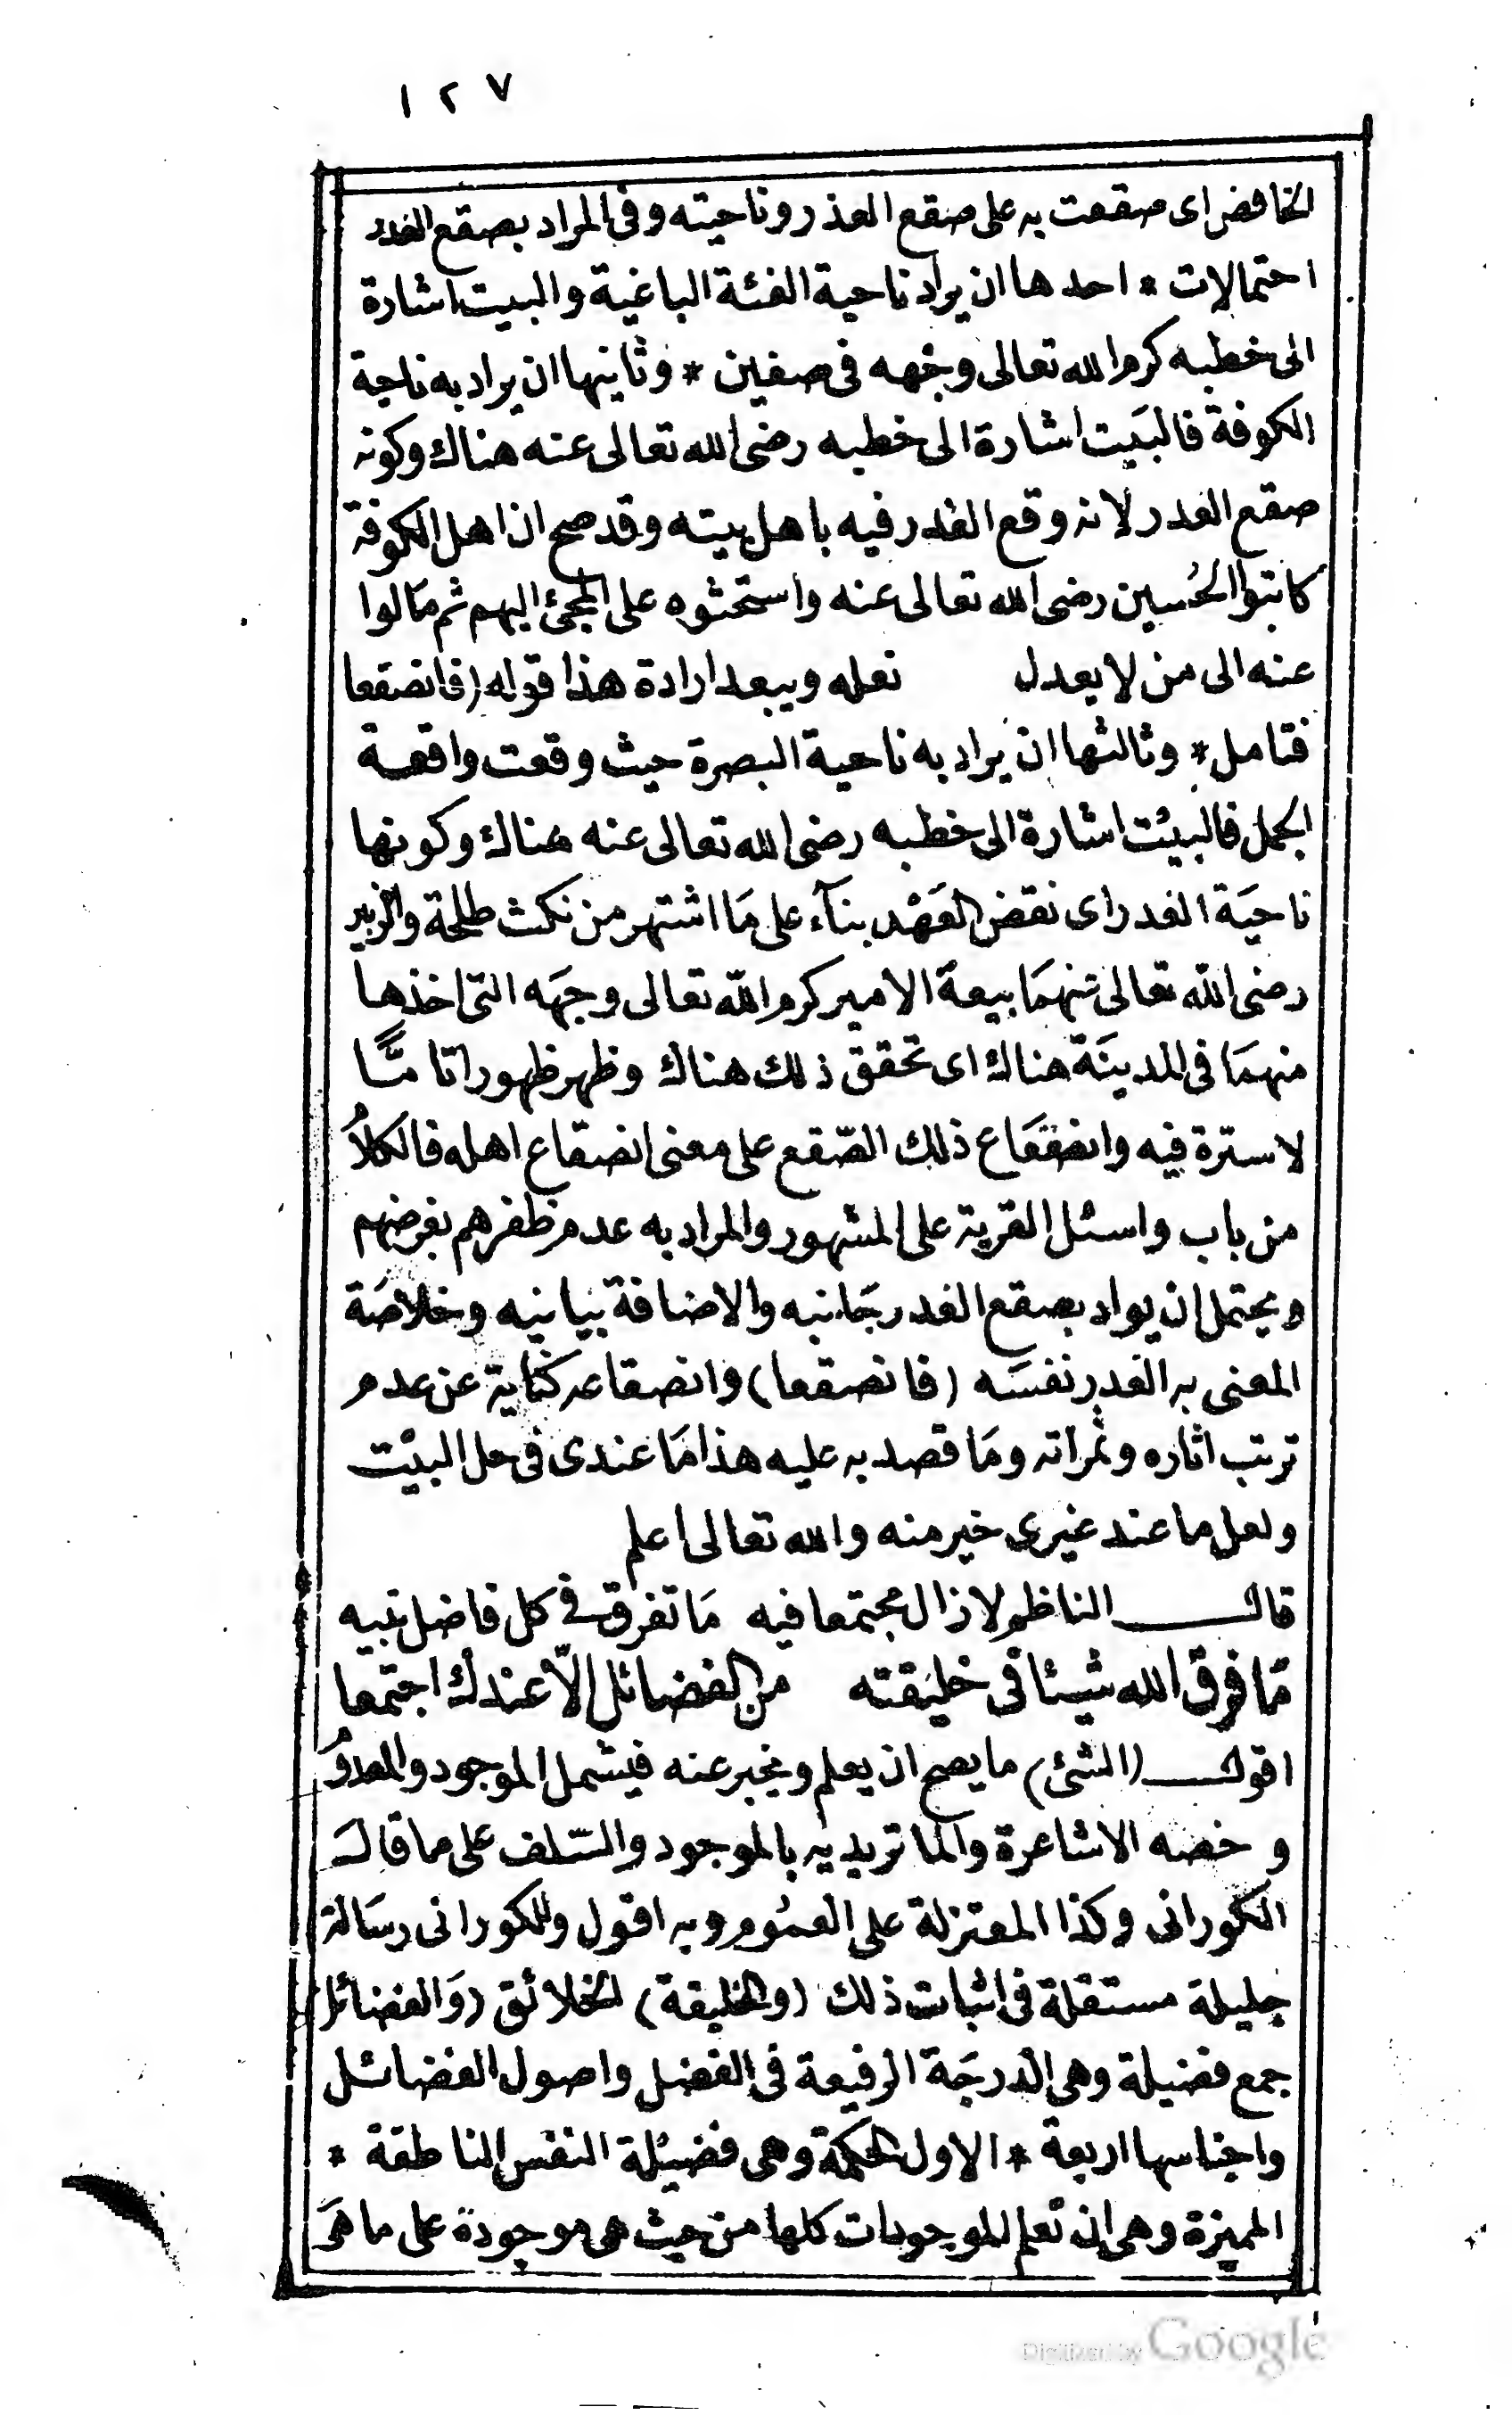 ١٢٧
الخافض اى صقعت به على صقع الغدر وناحيته وفى المراد بصقع الغدر
احتمالات * احدها ان يراد ناحية الفئة الباغية والبيت اشارة
الى خطبه كرم الله تعالى وجهه فى صفين * وثانيها ان يراد به ناحية
الكوفة فالبيت اشارة الى خطبه رضى الله تعالى عنه هناك وكونه
صقع الغدر لانه وقع الغدر فيه باهل بيته وقد صح ان اهل الكوفة
كاتبوا الحُسين رضى الله تعالى عنه واستحثوه على المجئ اليهم ثم مَالوا
عنه الى من لا يعدل نعله ويبعد ارادة هذا قوله (فانصقعا
فتامل * وثالثها ان يراد به ناحية البصرة حيث وقعت واقعة
الجمل فالبيت اشارة الى خطبه رضى الله تعالى عنه هناك وكونها
ناحيَة الغدر اى نقض العَهْد بنآء على مَا اشتهر من نكث طلحة والزبير
رضى الله تعالى عنهمَا بيعة الامير كرم الله تعالى وجهَه التى اخذها
منهمَا فى المدينَة هناك اى تحقق ذلك هناك وظهر ظهورا تامًّا
لا سترة فيه وانصقَاع ذلك الصّقع على معنى انصقاع اهله فالكلامُ
من باب واسئل القرية على المشهور والمراد به عدم ظفرهم بغرضهم
ويحتمل ان يراد بصقع الغدر جَانبه والاضافة بيانيه وخلاصَة
المعنى به الغدر نفسَه (فانصقعا) وانصقاعه كناية عن عدم
ترتب اثاره وثمراته ومَا قصد به عليه هذا مَا عندى فى حل البيْت
ولعل ما عند غيرى خير منه والله تعالى اعلم
قال الناظم لا زال مجتمعا فيه مَا تفرق فى كل فاضل نبيه
مَا فرق الله شيئا فى خليقته من الفضائل الّا عندك اجتمعا
اقول (الشئ) ما يصح ان يعلم ويخبر عنه فيشمل الموجود والمعدومُ
وخصه الاشاعرة والماتريديه بالموجود والسّلف على ما قال
الكورانى وكذا المعتزلة على العمُوم وبه اقول وللكورانى رسَالة
جليلة مستقلة فى اثبات ذلك (والخليقة) الخلائق (وَالفضائل)
جمع فضيلة وهى الدرجَة الرفيعة فى الفضل واصول الفضائل
واجناسها اربعة * الاول الحكمة وهى فضيْلة النفس الناطقة *
المميزة وهى ان تعلم الموجودات كلها من حيث هى موجودة على ما هىَ
Digitized by Google